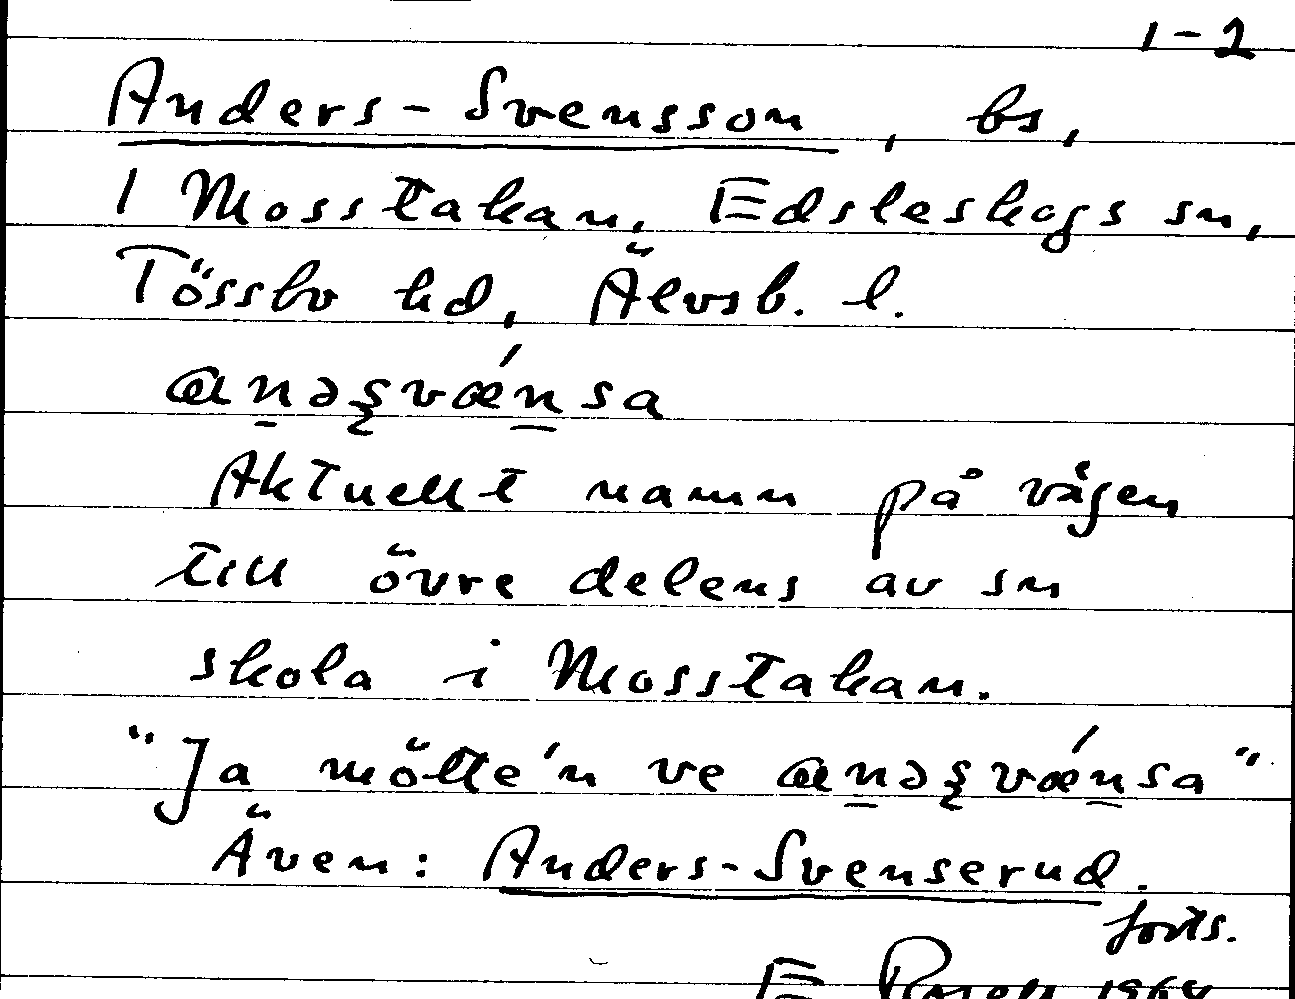 1-2
Anders-Svensson, bs,
i Mosstakan, Edsleskogs sn,
Tössbo hd, Älvsb. l.
an̲əʂvǽn̲sa
Aktuellt namn på vägen
till övre delens av sn
skola i Mosstakan.
"Ja mötte'n ve an̲əʂvǽn̲sa"
Även: Anders-Svenserud.
forts.
E 1964